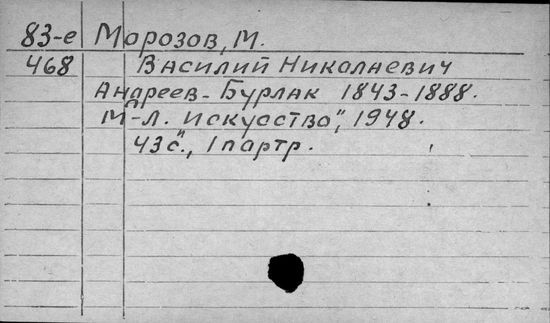 83-е Морозов, М.
468 Василий Николаевич
Андреев-Бурлак 1843-1888.
М-Л. „Искусство", 1948.
43 с., 1 партр.